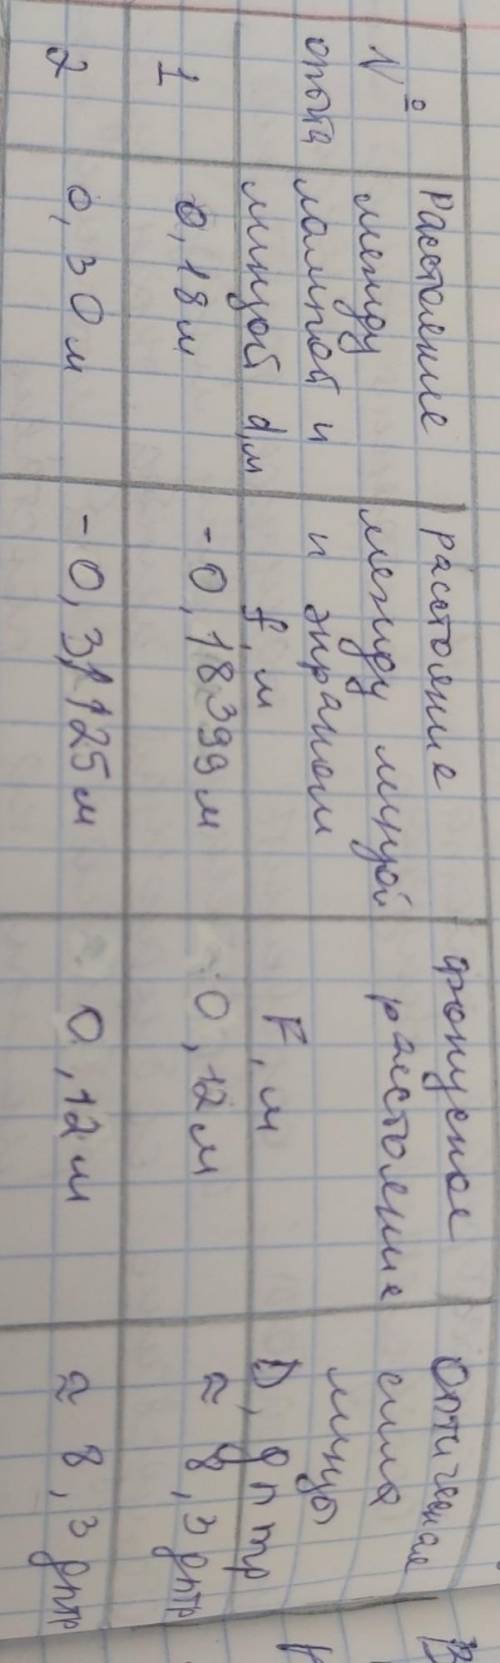 № опыта
Расстояние между лампой и линзой d, м
расстояние между линзой и экраном f, м
фокусное расстояние F, м
Оптическая сила линзы D, дптр
1
0,18 м
- 0,18399 м
0,12 м
≈ 8,3 дптр
2
0,30 м
- 0,31125 м
0,12 м
≈ 8,3 дптр